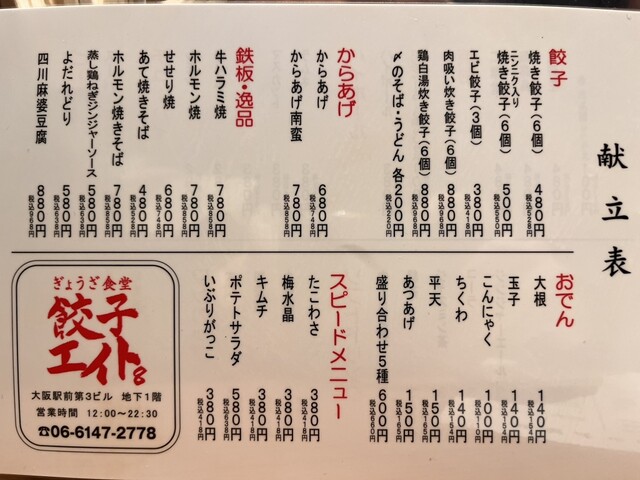 献立表
餃子
焼き餃子（6個） 480円
税込528円
ニンニク入り
焼き餃子（6個） 500円
税込550円
エビ餃子（3個） 380円
税込418円
肉吸い炊き餃子（6個） 880円
税込968円
鶏白湯炊き餃子（6個） 880円
税込968円
〆のそば・うどん 各200円
税込220円
からあげ
からあげ 680円
税込748円
からあげ南蛮 780円
税込858円
鉄板・逸品
牛ハラミ焼 780円
税込858円
ホルモン焼 780円
税込858円
せせり焼 680円
税込748円
あて焼きそば 480円
税込528円
ホルモン焼きそば 780円
税込858円
蒸し鶏ねぎジンジャーソース 580円
税込638円
よだれどり 580円
税込638円
四川麻婆豆腐 880円
税込968円
おでん
大根 140円
税込154円
玉子 140円
税込154円
こんにゃく 100円
税込110円
ちくわ 140円
税込154円
平天 150円
税込165円
あつあげ 150円
税込165円
盛り合わせ5種 600円
税込660円
スピードメニュー
たこわさ 380円
税込418円
梅水晶 380円
税込418円
キムチ 380円
税込418円
ポテトサラダ 580円
税込638円
いぶりがっこ 380円
税込418円
ぎょうざ食堂
餃子
エイト8
大阪駅前第3ビル 地下1階
営業時間 12:00～22:30
☎06-6147-2778